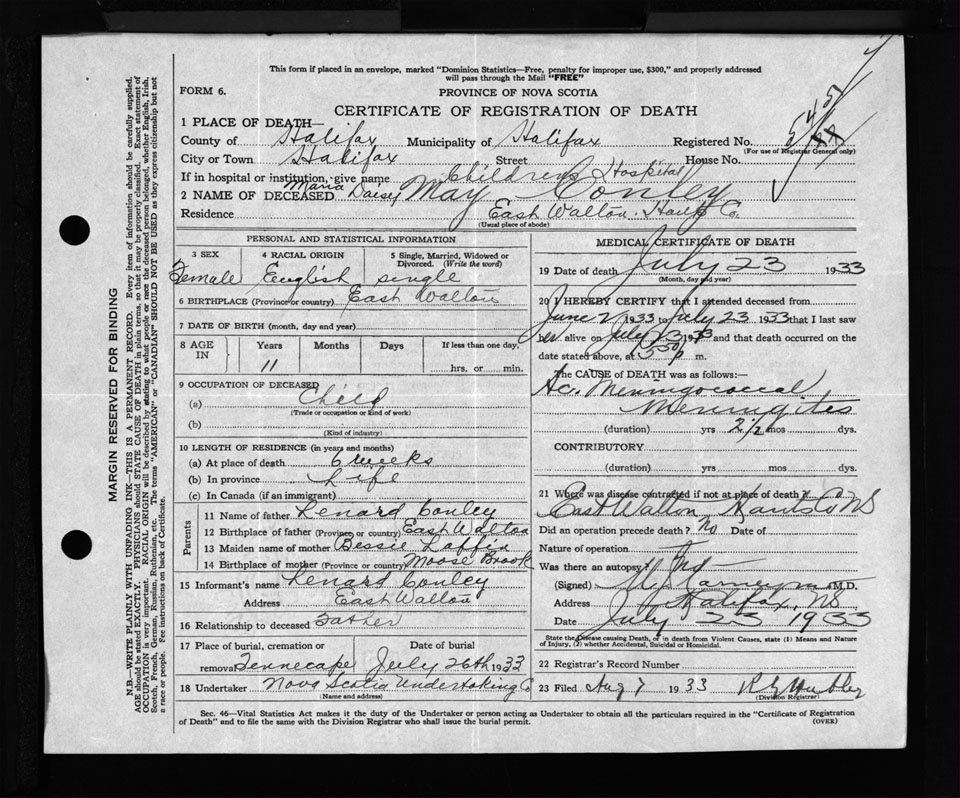 This form if placed in an envelope, marked "Dominion Statistics—Free, penalty for improper use, $300," and properly addressed
will pass through the Mail "FREE"
FORM 6.
PROVINCE OF NOVA SCOTIA
CERTIFICATE OF REGISTRATION OF DEATH
1 PLACE OF DEATH—
County of Halifax Municipality of Halifax Registered No.
(For use of Registrar General only)
City or Town Halifax Street House No.
If in hospital or institution, give name Childrens Hospital
2 NAME OF DECEASED Maria Daisy May Conley
Residence East Walton. Hants Co.
(Usual place of abode)
PERSONAL AND STATISTICAL INFORMATION
3 SEX 4 RACIAL ORIGIN 5 Single, Married, Widowed or Divorced. (Write the word)
Female English single
6 BIRTHPLACE (Province or country) East Walton
7 DATE OF BIRTH (month, day and year)
8 AGE IN Years Months Days If less than one day,
11 hrs. or min.
9 OCCUPATION OF DECEASED
(a) Child
(Trade or occupation or kind of work)
(b)
(Kind of industry)
10 LENGTH OF RESIDENCE (in years and months)
(a) At place of death 6 weeks
(b) In province Life
(c) In Canada (if an immigrant)
Parents
11 Name of father Lenard Conley
12 Birthplace of father (Province or country) East Walton
13 Maiden name of mother Bessie Laffin
14 Birthplace of mother (Province or country) Moose Brook
15 Informant's name Lenard Conley
Address East Walton
16 Relationship to deceased Father
17 Place of burial, cremation or removal Date of burial
Tennecape July 26th 1933
18 Undertaker Nova Scotia Undertaking Co
(Name and address)
MEDICAL CERTIFICATE OF DEATH
19 Date of death July 23 1933
(Month, day and year)
20 I HEREBY CERTIFY that I attended deceased from
June 2 1933 to July 23 1933 that I last saw
her alive on July 23 1933 and that death occurred on the
date stated above, at 5 30 p m.
The CAUSE of DEATH was as follows:—
Ac. Meningococcal
Meningites
(duration) yrs 2½ mos dys.
CONTRIBUTORY
(duration) yrs mos dys.
21 Where was disease contracted if not at place of death?
East Walton Hants Co NS
Did an operation precede death? No Date of
Nature of operation
Was there an autopsy? No
(Signed) M.D.
Address Halifax, NS
Date July 25 1933
State the Disease causing Death, or in death from Violent Causes, state (1) Means and Nature
of Injury, (2) whether Accidental, Suicidal or Homicidal.
22 Registrar's Record Number
23 Filed Aug 7 1933
(Division Registrar)
Sec. 46—Vital Statistics Act makes it the duty of the Undertaker or person acting as Undertaker to obtain all the particulars required in the "Certificate of Registration
of Death" and to file the same with the Division Registrar who shall issue the burial permit.
(OVER)
MARGIN RESERVED FOR BINDING
N.B.—WRITE PLAINLY WITH UNFADING INK—THIS IS A PERMANENT RECORD. Every item of information should be carefully supplied.
AGE should be stated EXACTLY. PHYSICIANS should STATE CAUSE OF DEATH in plain terms, so that it may be properly classified. Exact statement of
OCCUPATION is very important. RACIAL ORIGIN will be described by stating to what people or race the deceased person belonged, whether English, Irish,
Scotch, French, German, Russian, Ruthenian, etc. The terms "AMERICAN" or "CANADIAN" SHOULD NOT BE USED as they express citizenship but not
a race or people. Fee instructions on back of Certificate.